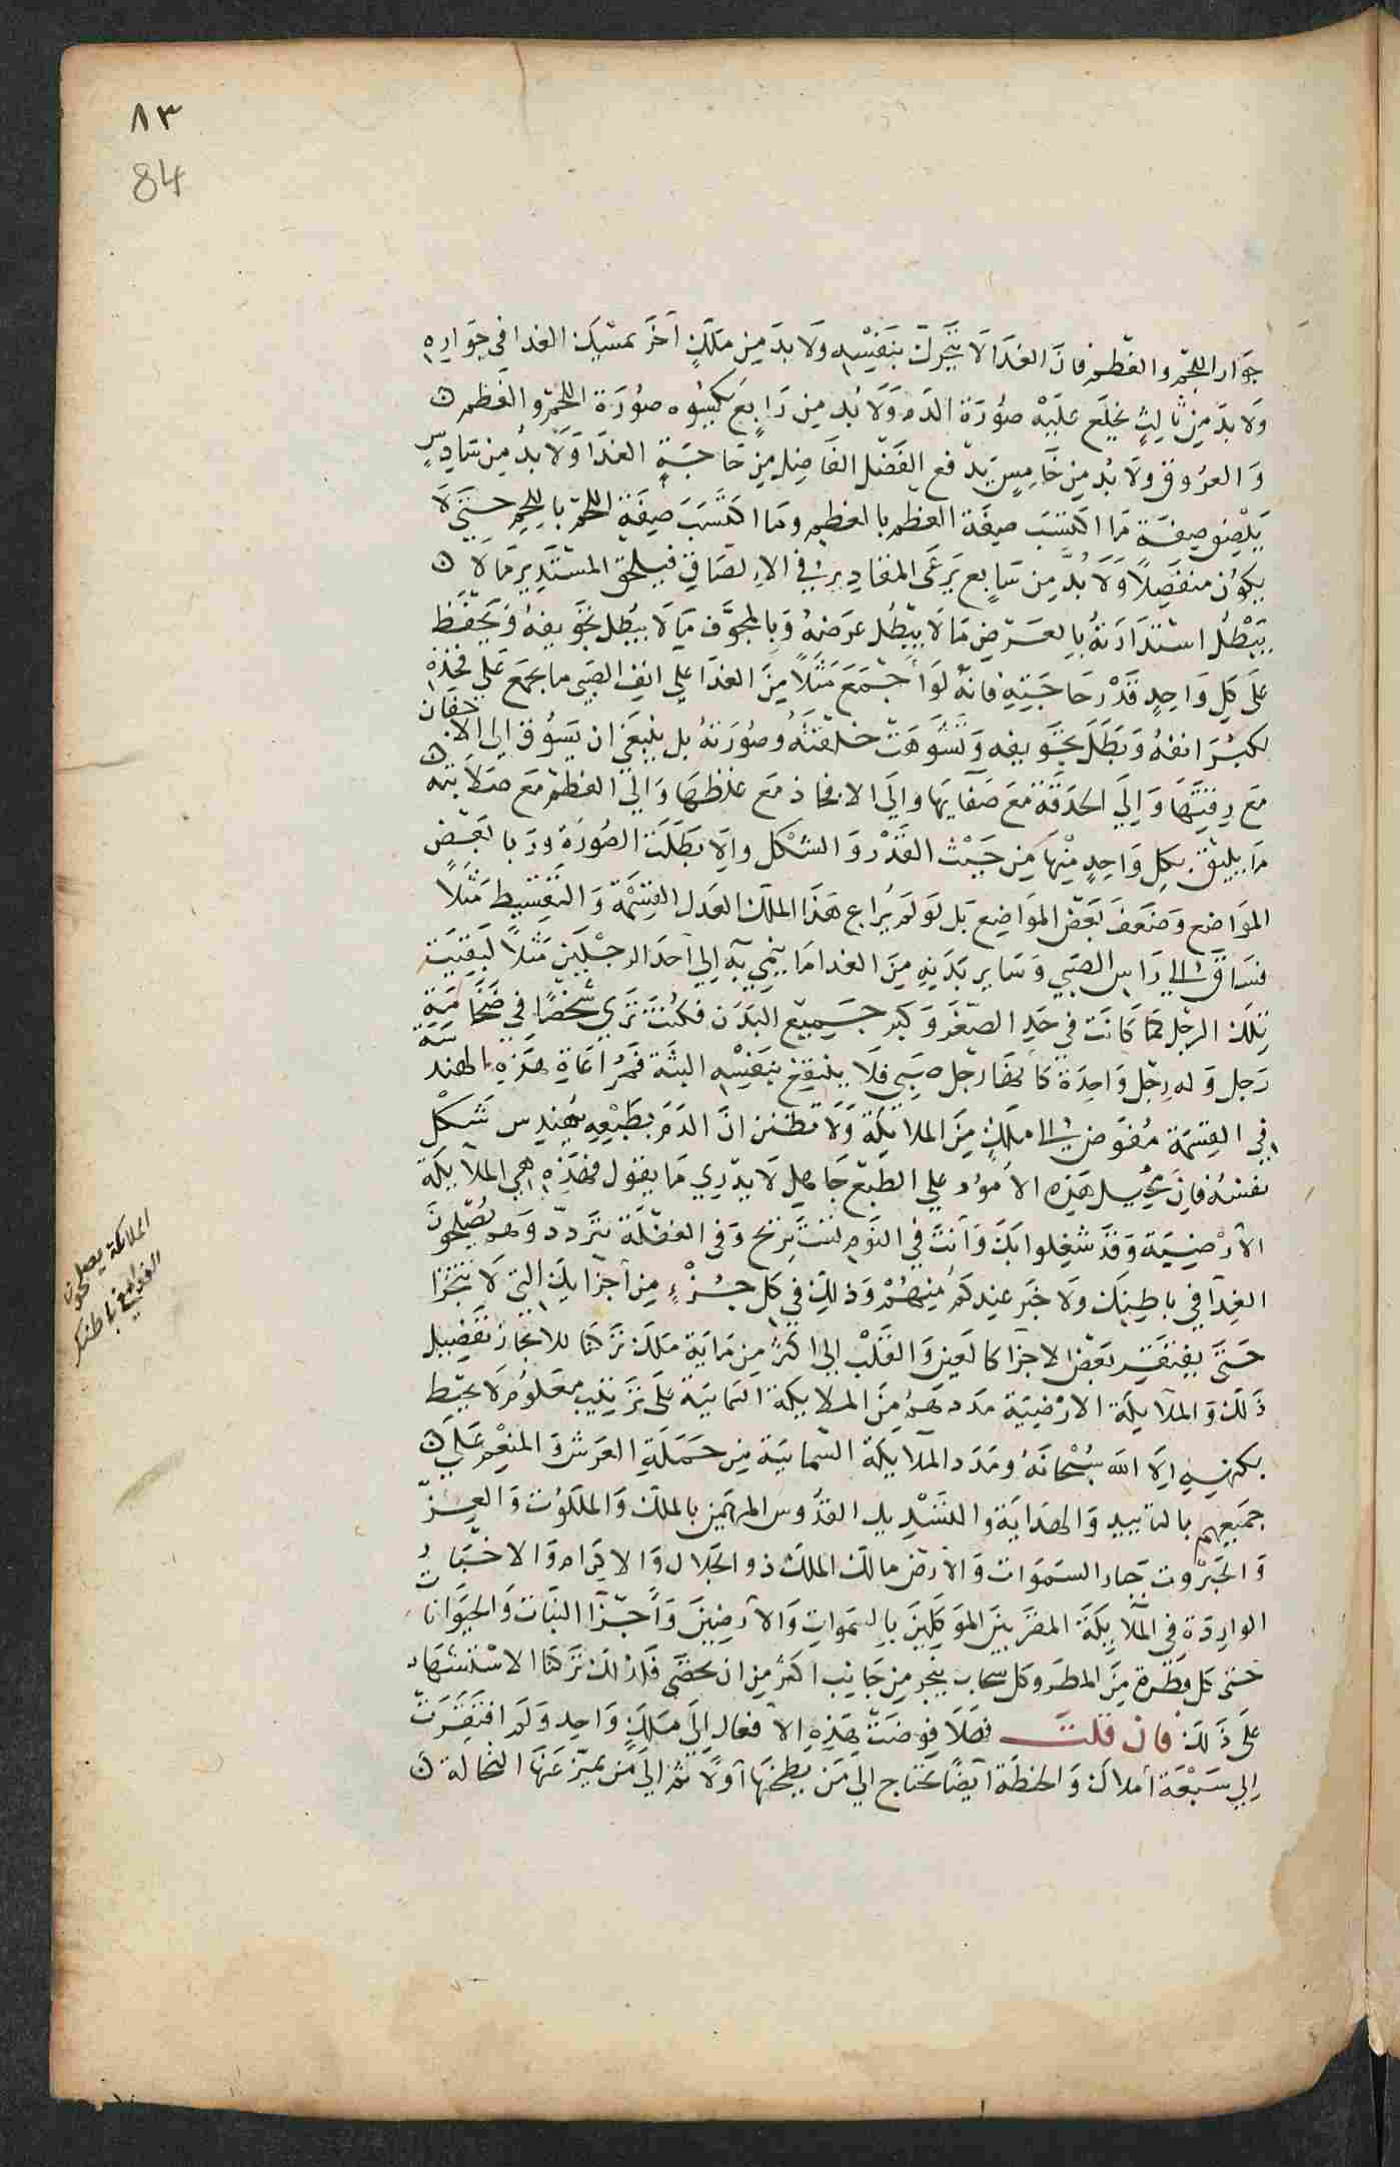 ٨٣
84
جوار اللحم والعظم فان الغدا لا يتحرك بنفسه ولا بد من ملك اخر يمسك الغدا في جواره
ولا بد من ثالث يخلع عليه صورة الدم ولا بد من رابع يكسوه صورة اللحم والعظم
والعروق ولا بد من خامس يدفع الفضل الفاضل من حاجة الغدا ولا بد من سادس
يلصق صيفة ما اكتسب صيفة العظم بالعظم وما اكتسب صيفة اللحم باللحم حتى لا
يكون منفصلا ولا بد من سابع يرعى المقادير في الالصاق فيلحق المستدير ما لا
يبطل استدادته بالعرض ما لا يبطل عرضه وبالمجوف ما لا يبطل تجويفه ويحفظ
على كل واحد قدر حاجته فانه لو اجتمع مثلا من الغدا على انف الصبي ما يجمع على فخذه
لكبر انفه وبطل تجويفه وتشوهت خلقته وصورته بل ينبغي ان يسوق الى الاجفان
مع رقتها والى الحدقة مع صفايها والى الافخاذ مع غلظها والى العظم مع صلابته
ما يليق بكل واحد منها من حيث القدر والشكل والا بطلت الصورة وربا بعض
المواضع وضعف بعض المواضع بل لو لم يراع هذا الملك العدل القسمة والتقسيط مثلا
فساق الى راس الصبي وساير بدنه من الغدا ما ينمي به الى احد الرجلين مثلا لبقيت
تلك الرجل كما كانت في حد الصغر وكبر جميع البدن فكنت ترى شخصا في ضخامة
رجل وله رجل واحدة كانها رجل صبي فلا ينتفع بنفسه البتة فمراعاة هذه الهندسة
في القسمة مفوض الى ملك من الملايكة ولا تظنن ان الدم بطبعه يهندس شكل
نفسه فان محيل هذه الامور على الطبع جاهل لا يدري ما يقول فهذه هي الملايكة
الارضية وقد شغلوا بك وانت في النوم تستريح وفي الغفلة تتردد وهم يصلحون
الغدا في باطنك ولا خبر عندكم منهم وذلك في كل جزء من اجزايك التي لا تتجزا
حتى يفتقر بعض الاجزا كالعين والقلب الى اكثر من ماية ملك تركنا للايجاز تفصيل
ذلك والملايكة الارضية مددهم من الملايكة السمايية على ترتيب معلوم لا يحيط
بكنهه الا الله سبحانه ومدد الملايكة السمايية من حملة العرش والمنعم على
جميعهم بالتاييد والهداية والتسديد القدوس المهيمن بالملك والملكوت والعزة
والجبروت جبار السموات والارض مالك الملك ذو الجلال والاكرام والاخبار
الواردة في الملايكة المقربين الموكلين بالسموات والارضين واجزا النبات والحيوانات
حتى كل قطرة من المطر وكل سحاب ينجر من جانب اكثر من ان تحصى فلذلك تركنا الاستشهاد
على ذلك فان قلت فهلا فوضت هذه الافعال الى ملك واحد ولم افتقرت
الى سبعة املاك والحنطة ايضا تحتاج الى من يطحنها اولا ثم الى من يميز عنها النخالة
الملائكة يصلحون
الغدا مع باطنكم